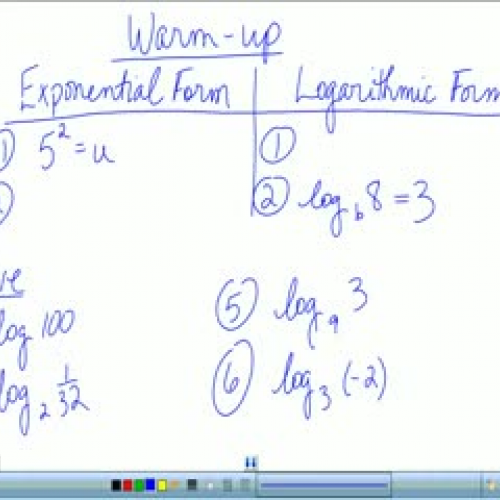 Warm-up
Exponential Form Logarithmic Form
1 5² = u 1
2 log_b 8 = 3
log 100 5 log_9 3
log_2 1/32 6 log_3 (-2)